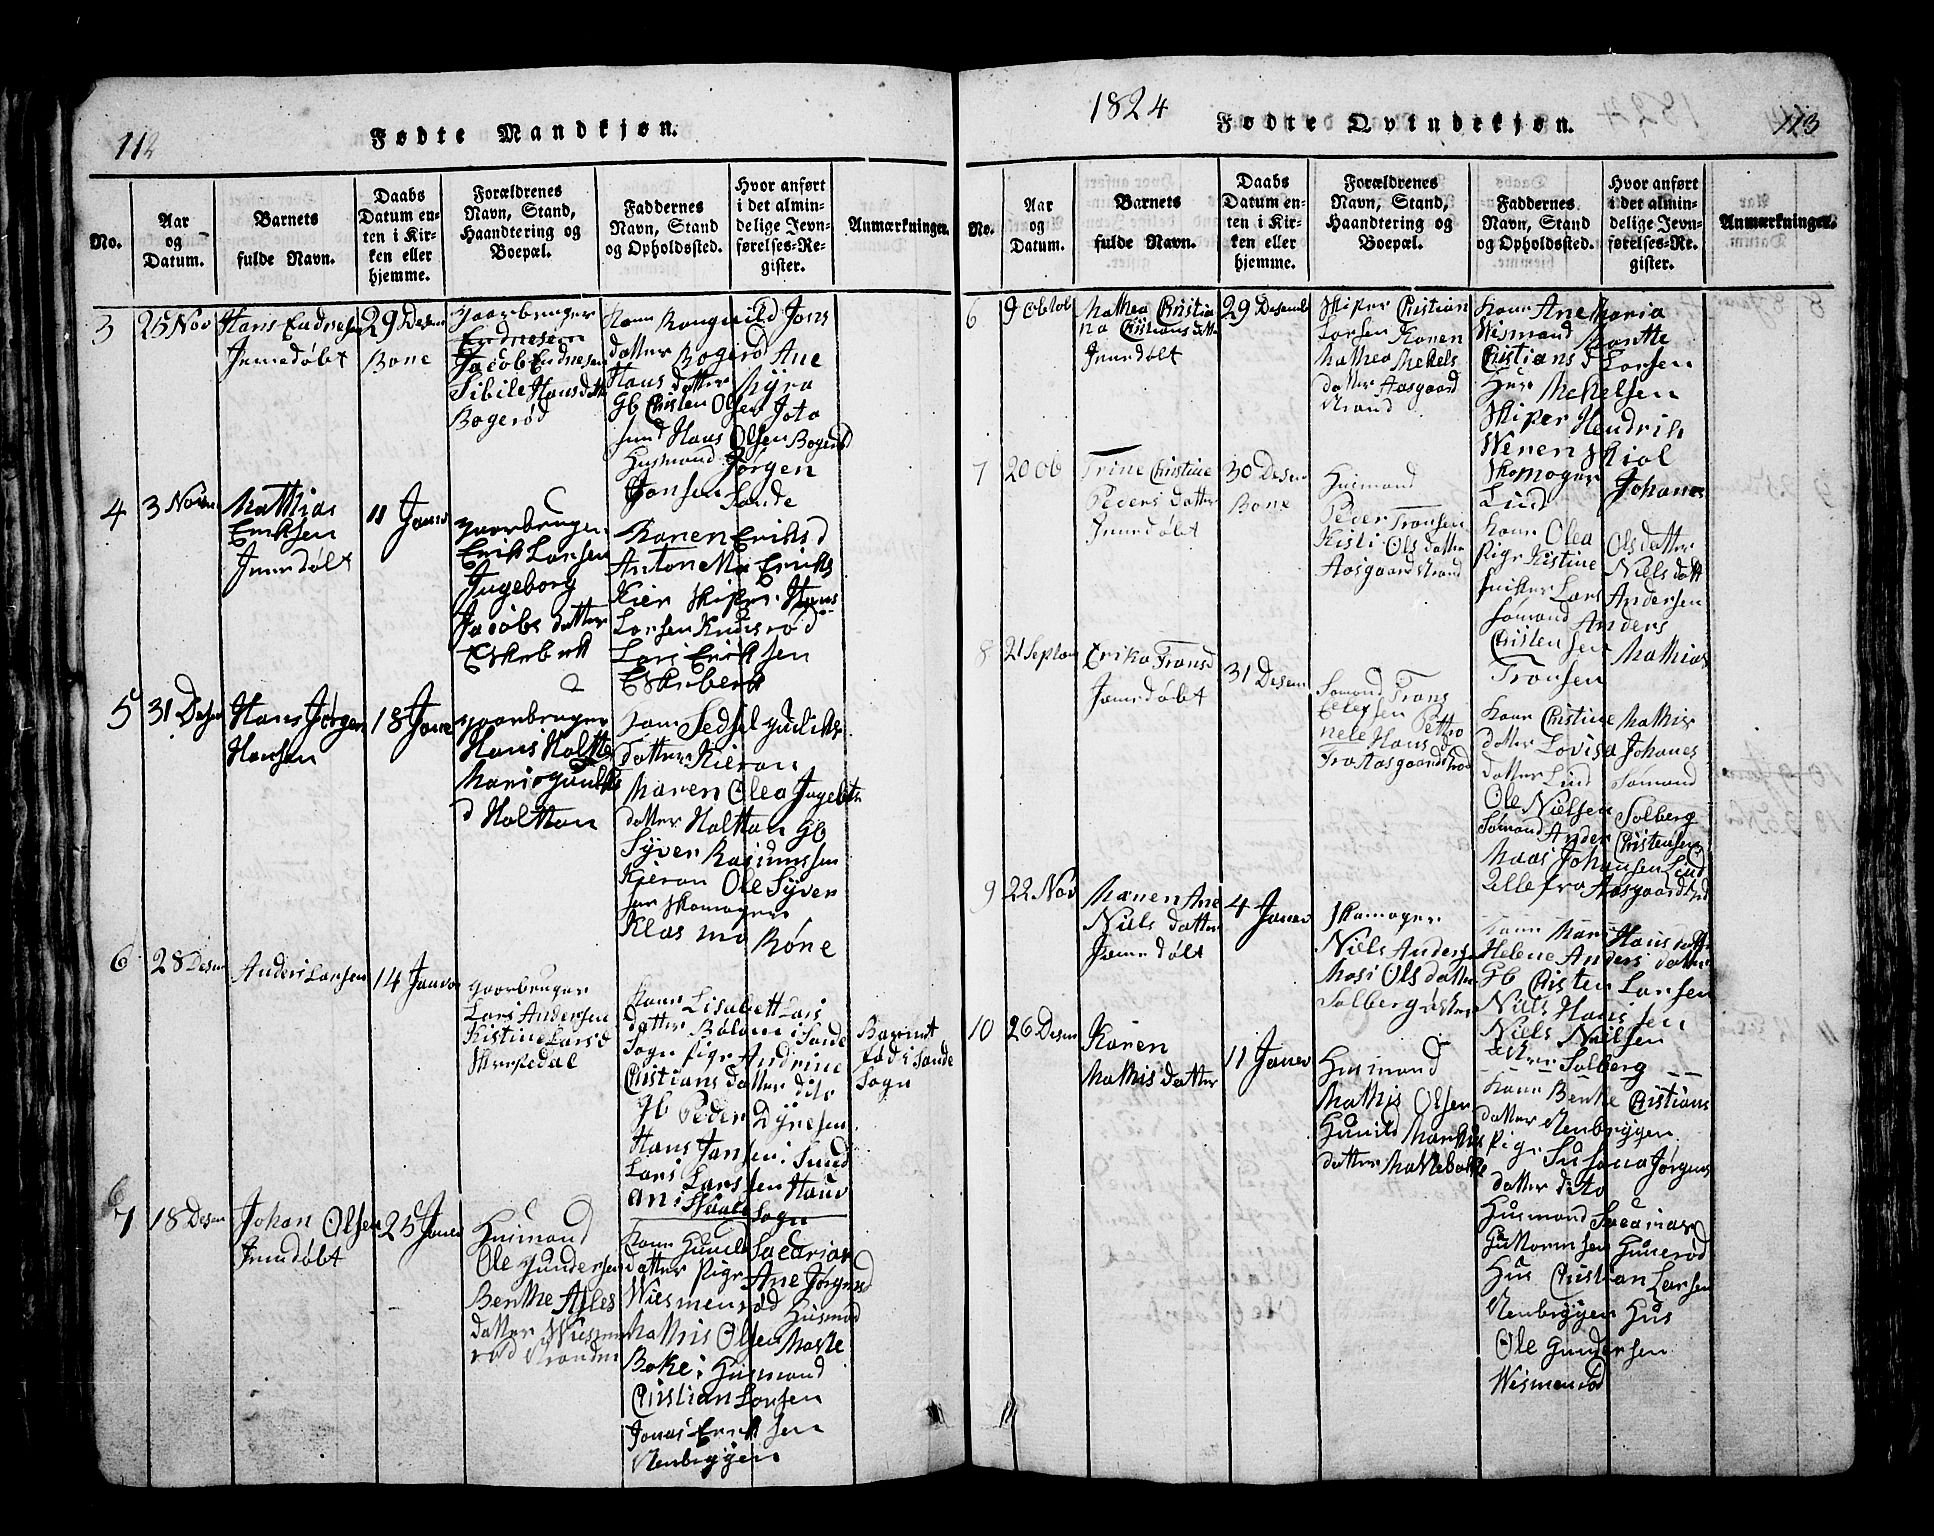 112
Fødte Mandkjøn.
No.
Aar
og
Datum.
Barnets
fulde Navn.
Daabs
Datum en-
ten i Kir-
ken eller
hjemme.
Forældrenes
Navn, Stand,
Haandtering og
Boepæl.
Faddernes
Navn, Stand
og Opholdssted.
Hvor anført
i det almin-
delige Jevn-
førelses-Re-
gister.
Anmærkninger.
3
25 Nov
Hans Endresen
Jemedøbt
29 Desem
Bone
gaarbruger
Endresen
Jacob Endresen
Sibile Hans datt
Bogerød
Kone Rongnild Jons
datter Bogerød Ane
Hans datter Myra
Gb Cristen Olsen
Hans Olsen Bogerød
Husmand Jørgen
Jonsen Sande
4
3 Novem
Matthias
Eriksen
Jemedøbt
11 Janu
gaarbruger
Erik Larsen
Ingeborg
Jacobs datter
Eskebek
Karen Eriks d
Anton Eriks
Kier Skiper Hans
Larsen Knusrød
Lars Erik sen
Eskebek
5
31 Desem
Hans Jørgen
Hansen
18 Janu
gaarbruger
Hans Holtte
Maria
d Holttan
Kone Sedsel
datter Kieran
Maren Olea Ingebrts
datter Holttan Gb
Syver Rasmussen
Kieran Ole Syver
sen Skomager
Klas mo Røne
6
28 Desem
Anders Larsen
14 Januar
gaarbruger
Lars Andersen
Kistine Lars d
Skersedal
Kone Lisabett Lars
datter i Sande
Sogn pige Andrine
Cristians datter dito
Gb Peder Dyresen
Hans Jansen i Sund
Lars Lars sen Haav
an i Skaale Sogn
Barnet
fød i Sande
Sogn
7
18 Desem
Johan Olsen
Jemedøbt
25 Janu
Husmand
Ole Gundersen
Benthe Asles
datter Wismen
rød Stranden
Kone Gunild Sacarias
datter Pige Ane Jørgens d
Wismenrød Husmand
Mathis Olsen Maske
Boke i Husmand
Cristian Larsen
Jonas Erik sen
Nenbryggen
1824
Fødte Qvindekjøn.
113
No.
Aar
og
Datum.
Barnets
fulde Navn.
Daabs
Datum en-
ten i Kir-
ken eller
hjemme.
Forældrenes
Navn, Stand,
Haandtering og
Boepæl.
Faddernes
Navn, Stand
og Opholdssted.
Hvor anført
i det almin-
delige Jevn-
førelses-Re-
gister.
Anmærkninger.
6
9 Obtob
Mathea Cristia
na Cristians datte
Jemedøbt
29 Desemb
Skiper Cristian
Larsen Karen
Mathea Mekels
datter Aasgaard
strand
Kone Ane Maria
Wismand Bontte
Cristians d Larsen
Hus Mekelsen
Skiper Hendrik
Wenensskiol
Skomager Johanes
Lind
7
20 Ob
Trine Cristine
Peders datter
Jemedøbt
30 Desem
Bone
Husmand
Peder Tronsen
Kisti Ols datter
Aasgaardstrand
Kone Olea Ols datter
Pige Kistine Niels datt
Lars Andersen
Sømand Anders
Cristen sen Mathias
Tronsen
8
21 Septem
Erika Trons d
Jemedøbt
31 Desem
Sømand Trons
Petro
nele Hans d
Fra Aasgaardstrand
Kone Cristine Mathis
datter Lovisa Johanes
datter Lind Sømand
Ole Nielsen Solberg
Sømand Ander Cristensen
Maas Johansen Lind
alle fra Aasgaardstrand
9
22 Nov
Maren Ane
Niels datter
Jemedøbt
4 Januv
Skomager
Niels Andersen
Mari Ols datter
Solberg østre
Kone Mari Hans datter
Helene Anders datter
Gb Cristen Larsen
Niels Hans sen
Niels Nielsen
Solberg
10
26 Desem
Karen
Mathis datter
11 Januv
Husmand
Mathis Olsen
Gunild Markus
datter Maskeboke
Kone Benthe Cristians
datter Nenbryggen
Pige Susana Jørgens
datter dito
Husmand Sacarias
Guttormsen Gunerød
Hus Cristian Larsen
Nenbryggen Hus
Ole Gundersen
Wismenrød